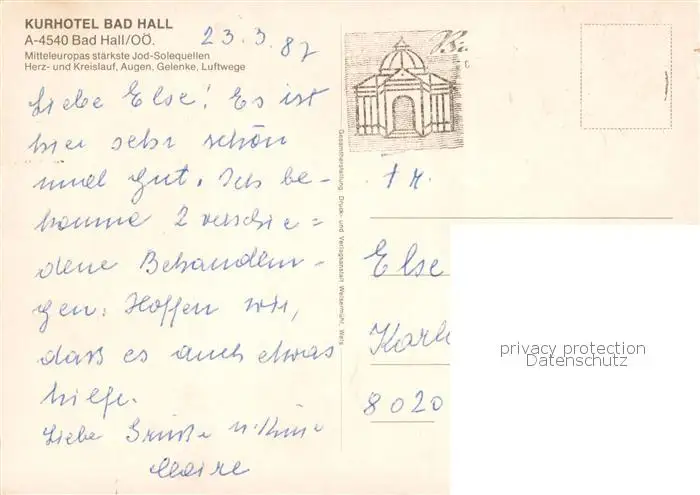 KURHOTEL BAD HALL
A-4540 Bad Hall/OÖ.
Mitteleuropas stärkste Jod-Solequellen
Herz- und Kreislauf, Augen, Gelenke, Luftwege
23.3.87
Liebe Else! Es ist
hier sehr schön
und gut. Ich be-
komme 2 verschie=
dene Behandlun-
gen. Hoffen wir,
daß es auch etwas
hilft.
Liebe Grüße u. Küsse
Gesamtherstellung: Druck- und Verlagsanstalt Welsermühl, Wels
Fr.
Else
8020
privacy protection
Datenschutz